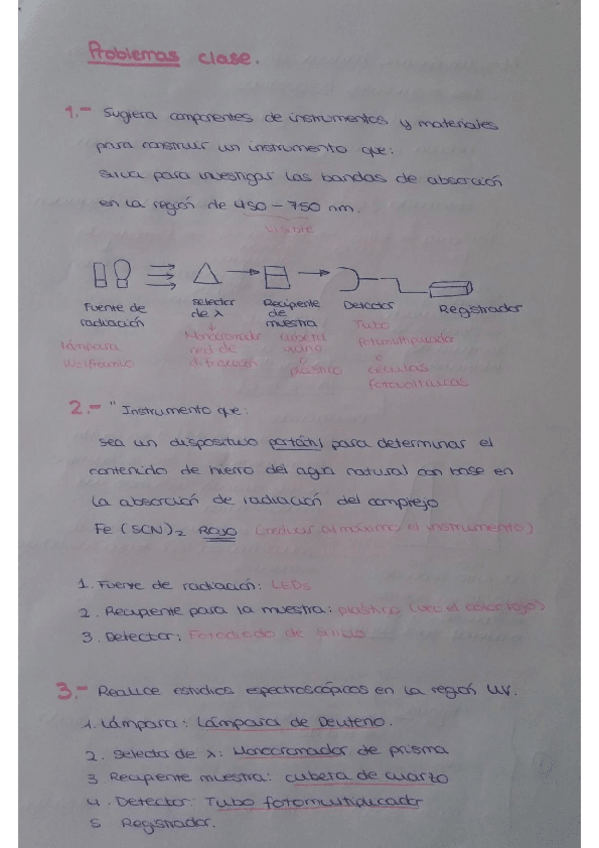 Problemas clase.
1.- Sugiera componentes de instrumentos y materiales
para construir un instrumento que:
Sirva para investigar las bandas de absorción
en la región de 450 - 750 nm.
visible
Fuente de radiación
selector de λ
Recipiente de muestra
Detector
Registrador
lámpara Wolframio
Monocromador red de difracción
cubeta vidrio o plástico
Tubo fotomultiplicador o células fotovoltaicas
2.- " Instrumento que:
sea un dispositivo portátil para determinar el
contenido de hierro del agua natural con base en
la absorción de radiación del complejo
Fe (SCN)2 ROJO (reducir al máximo el instrumento)
1. Fuente de radiación: LEDs
2. Recipiente para la muestra: plástico (veo el color rojo)
3. Detector: Fotodiodo de silicio
3.- Realice estudios espectroscópicos en la región UV.
1. Lámpara: Lámpara de Deuterio.
2. Selector de λ: Monocromador de prisma
3 Recipiente muestra: cubeta de cuarzo
4. Detector: Tubo fotomultiplicador
5 Registrador.